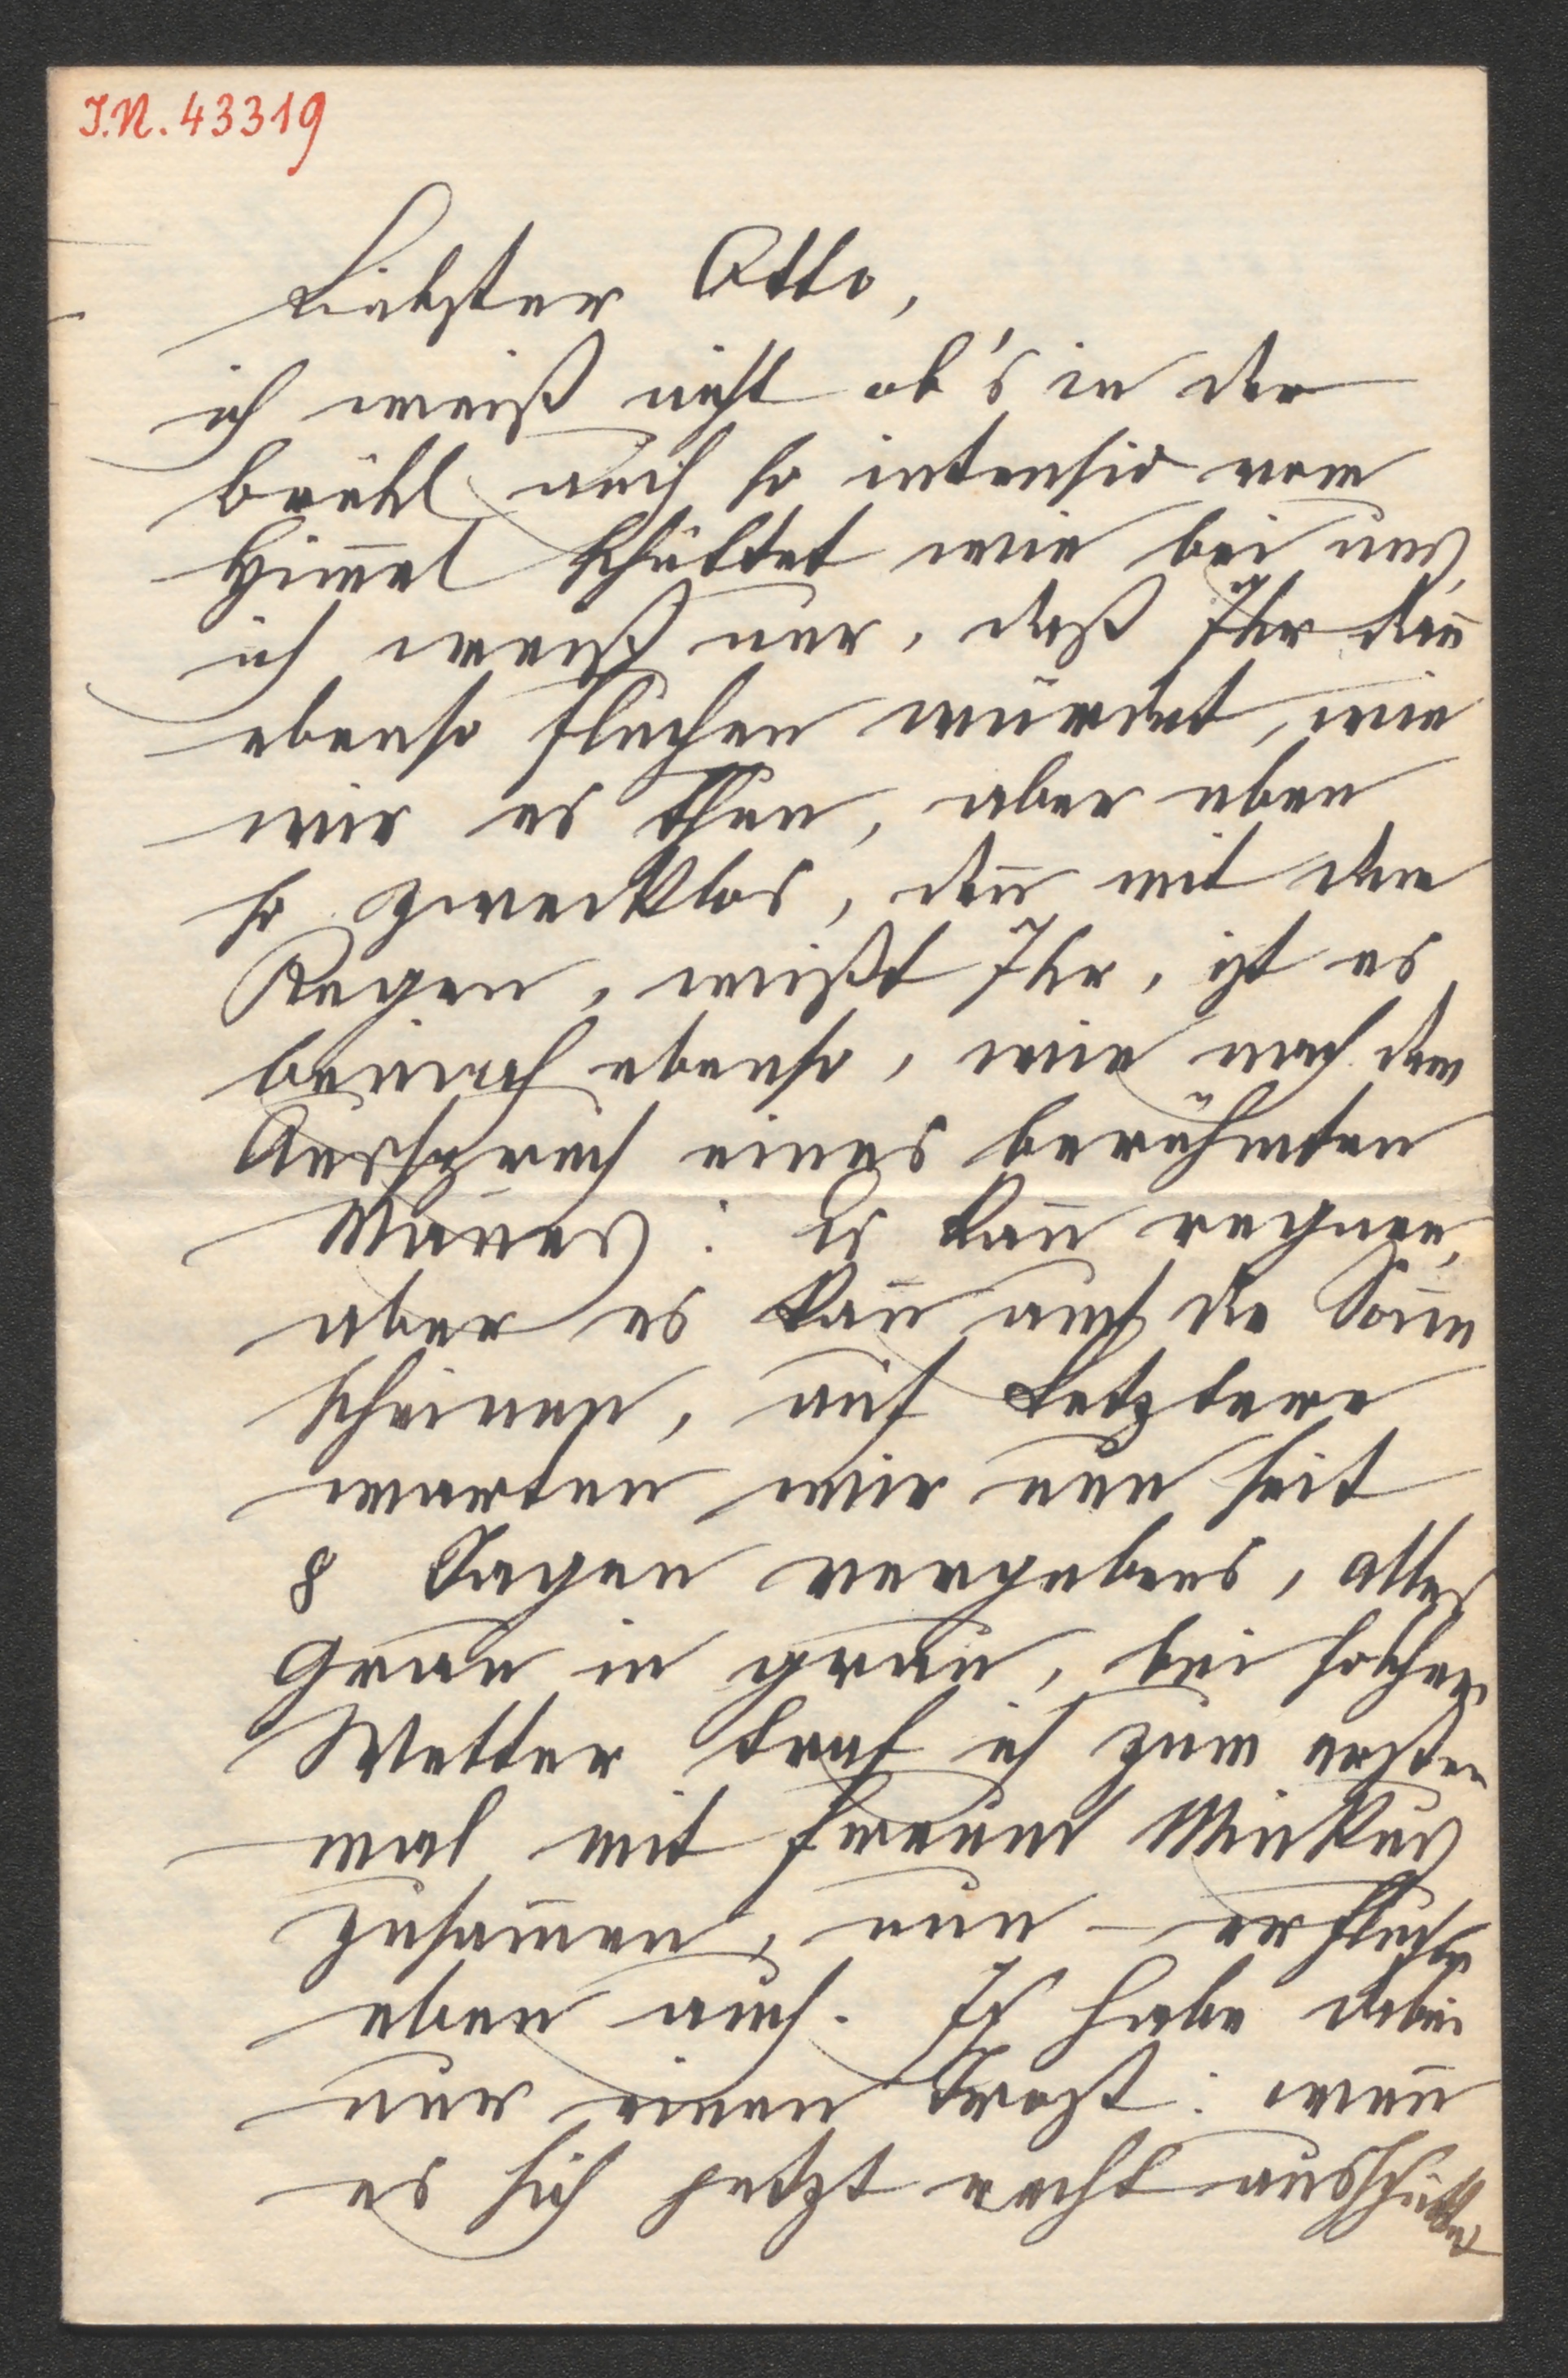 I.N. 43319
Liebster Otto,
ich weiß nicht ob's in der
Brühl auch so intensiv vom
Him̅el schüttet wie bei uns,
ich weiß nur, daß Ihr den̅
ebenso fluchen würdet, wie
wir es thun, aber eben
so zwecklos, den̅ mit dem
Regen, wißt Ihr, ist es
beinah ebenso, wie nach dem
Ausspruch eines berühmten
Man̅es: Es kan̅ regnen,
aber es kan̅ auch die Son̅e
scheinen, auf Letztere
warten wir nun seit
8 Tagen vergebens, alles
Grau in grau, bei solchem
Wetter traf ich zum ersten
mal mit Freund Minkus
zusam̅en, nun – er fluchte
eben auch. Ich habe dabei
nur einen Trost: wen̅
es sich jetzt recht ausschüttet